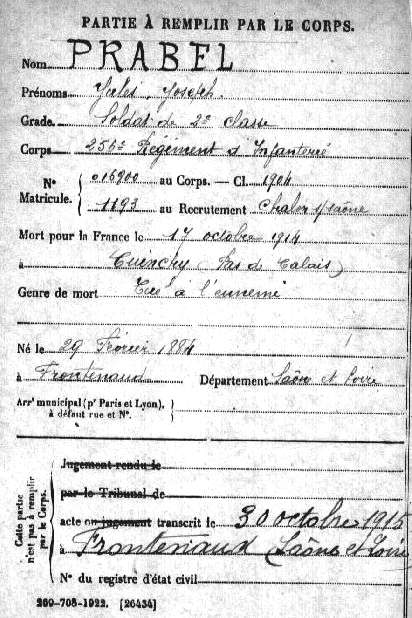 PARTIE À REMPLIR PAR LE CORPS.
Nom PRABEL
Prénoms Jules, Joseph.
Grade Soldat de 2e classe
Corps 256e Régiment d'Infanterie
N° Matricule. { 016900 au Corps. — Cl. 1904
1193 au Recrutement Chalon s/Saône
Mort pour la France le 17 octobre 1914
à Cuinchy (Pas de Calais)
Genre de mort Tué à l'ennemi
Né le 29 Février 1884
à Frontenaud Département Saône et Loire
Arrt municipal (pr Paris et Lyon), à défaut rue et N°. {
Cette partie n'est pas à remplir par le Corps.
Jugement rendu le
par le Tribunal de
acte ou jugement transcrit le 30 octobre 1915
à Frontenaud (Saône et Loire
N° du registre d'état civil
269-708-1922. [26434]